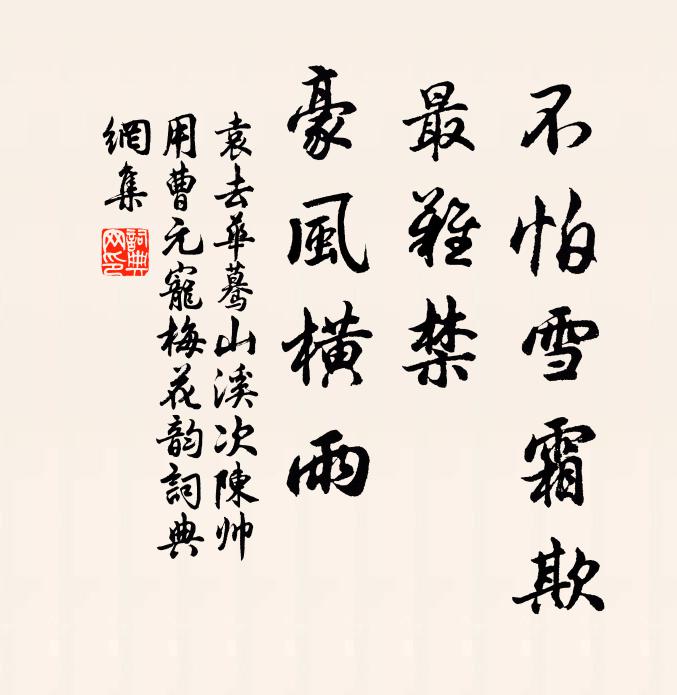 不怕雪霜欺
最難禁
豪風橫雨
袁去華驀山溪次陳帅
用曹元寵梅花韵詞典
網集
詞典網印